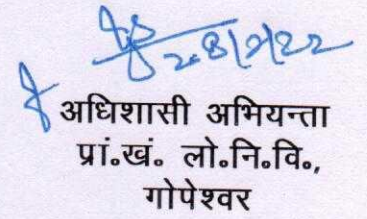 28/2/22
अधिशासी अभियन्ता
प्रां॰खं॰ लो॰नि॰वि॰,
गोपेश्वर